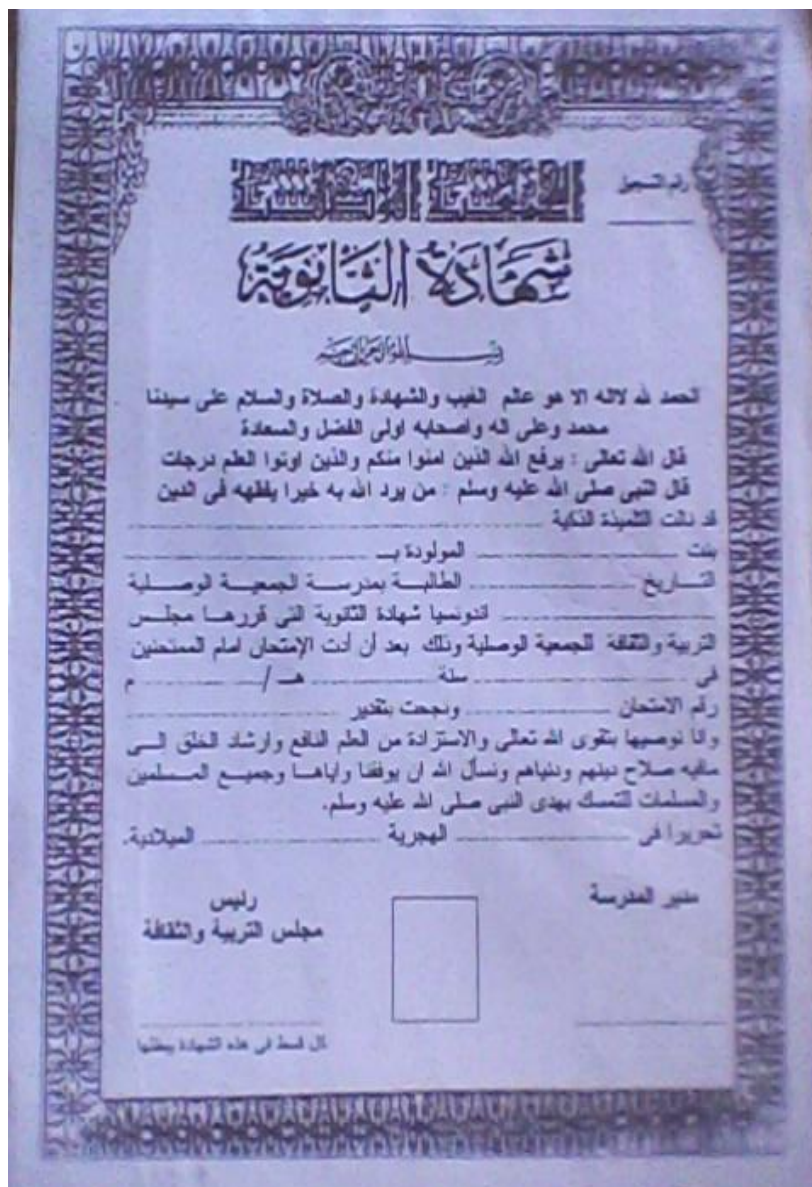 رقم التسجيل
شهادة الثانوية
الحمد لله لااله الا هو عالم الغيب والشهادة والصلاة والسلام على سيدنا
محمد وعلى اله واصحابه اولى الفضل والسعادة
قال الله تعالى : يرفع الله الذين امنوا منكم والذين اوتوا العلم درجات
قال النبي صلى الله عليه وسلم : من يرد الله به خيرا يفقهه في الدين
قد نالت التلميذة الذكية
بنت المولودة بـ
التــاريخ الطالبة بمدرسـة الجمعيـة الوصـلية
اندونسيا شهادة الثانوية التي قررهـا مجلـس
التربية والثقافة للجمعية الوصلية وذلك بعد أن أدت الإمتحان امام الممتحنين
في سنة هـ / م
رقم الامتحان ونجحت بتقدير
وانا نوصيها بتقوى الله تعالى والاستزادة من العلم النافع وارشاد الخلق الـى
مافيه صلاح دينهم ودنياهم ونسأل الله ان يوفقنا واياهـا وجميـع المـسلمين
والمسلمات للتمسك بهدى النبي صلى الله عليه وسلم.
تحريرا في الهجرية الميلادية.
مدير المدرسة
رئيس
مجلس التربية والثقافة
في هذه الشهادة يبطلها